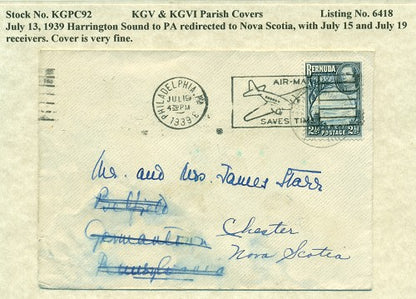 Stock No. KGPC92 KGV & KGVI Parish Covers Listing No. 6418
July 13, 1939 Harrington Sound to PA redirected to Nova Scotia, with July 15 and July 19
receivers. Cover is very fine.
PHILADELPHIA, PA.
JUL 19
4 PM
1939
AIR-MAIL
SAVES TIME
BERMUDA
2½ POSTAGE 2½
Mr. and Mrs. James Starr
Germantown
Pennsylvania
Chester
Nova Scotia